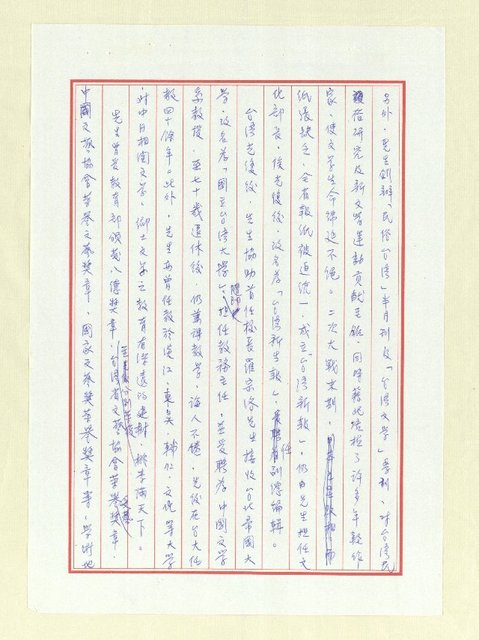 另外,先生創辦「民俗台灣」半月刊及「台灣文學」季刊,對台湾民
俗研究及新文學運動貢獻至鉅,同時藉此培植了許多年輕作
家,使文學生命綿延不絕。二次大戰末期,
紙張缺乏,全省報紙被迫統一,成立「台湾新報」,仍由先生担任文
化部長,後光復後,改名為「台湾新生報」,任副總編輯。
台湾光復後,先生協助首任校長羅宗洛先生接收台北帝國大
學,改名為「國立台湾大學」,隨即担任教務主任,並受聘為中國文學
系教授,至七十歲退休後,仍兼課教學,誨人不倦,先後在台大任
教四十餘年。此外,先生尚曾任教於淡江、東吳、輔仁、文化等大學
,对中日相関文学、鄉土文学之教育有深遠的建樹,桃李滿天下。
先生曾受教育部頒發八德獎章,台湾省文藝協會榮譽獎章,
中國文藝協會榮譽文藝獎章,國家文藝獎榮譽獎章等,學術地